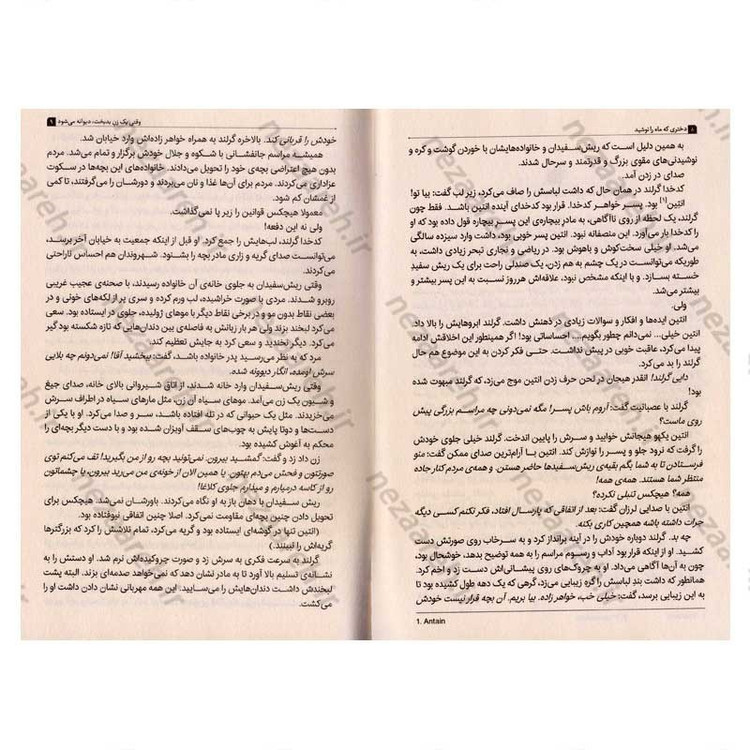 ۸ دختری که ماه را نوشید
به همین دلیل است که ریش‌سفیدان و خانواده‌هایشان با خوردن گوشت و کره و
نوشیدنی‌های مقوی بزرگ و قدرتمند و سرحال شدند.
صدای در زدن آمد.
کدخدا گرلند در همان حال که داشت لباسش را صاف می‌کرد، زیر لب گفت: بیا تو!
انتین[1] بود. پسر خواهر کدخدا. قرار بود کدخدای آینده انتین باشد. فقط چون
گرلند، یک لحظه از روی ناآگاهی، به مادر بیچاره‌ی این پسر بیچاره قول داده بود که او
را کدخدا بار می‌آورد. این منصفانه نبود. انتین پسر خوبی بود، داشت وارد سیزده سالگی
می‌شد. او خیلی سخت‌کوش و باهوش بود. در ریاضی و نجاری تبحر زیادی داشت، به
طوریکه می‌توانست در یک چشم به هم زدن، یک صندلی راحت برای یک ریش سفیدِ
خسته بسازد. و با اینکه مشخص نبود، علاقه‌اش هرروز نسبت به این پسر بیشتر و
بیشتر می‌شد.
ولی.
انتین ایده‌ها و افکار و سوالات زیادی در ذهنش داشت. گرلند ابروهایش را بالا داد.
انتین خیلی... نمی‌دانم چطور بگویم.... احساساتی بود! اگر همینطور این اخلاقش ادامه
پیدا می‌کرد، عاقبت خوبی در پیش نداشت. حتی فکر کردن به این موضوع هم حال
گرلند را بد می‌کرد.
دایی گرلند! انقدر هیجان در لحن حرف زدن انتین موج می‌زد، که گرلند مبهوت شده
بود!
گرلند با عصبانیت گفت: آروم باش پسر! مگه نمی‌دونی چه مراسم بزرگی پیش
روی ماست؟
انتین یکهو هیجانش خوابید و سرش را پایین انداخت. گرلند خیلی جلوی خودش
را گرفت که نرود جلو و پسر را نوازش کند. انتین با آرام‌ترین صدای ممکن گفت: منو
فرستادن تا به شما بگم بقیه‌ی ریش‌سفیدها حاضر هستن. و همه‌ی مردم کنار جاده
منتظر شما هستند. همه‌ی همه!
همه؟ هیچکس تنبلی نکرده؟
انتین با صدایی لرزان گفت: بعد از اتفاقی که پارسال افتاد، فکر نکنم کسی دیگه
جرات داشته باشه همچین کاری بکنه.
چه بد. گرلند دوباره خودش را در آینه برانداز کرد و به سرخاب روی صورتش دست
کشید. او از اینکه قرار بود آداب و رسوم مراسم را به همه توضیح بدهد، خوشحال بود،
چون به آن‌ها آگاهی می‌داد. او به چروک‌های روی پیشانی‌اش دست زد و اخم کرد.
همانطور که داشت بند لباسش را گره زیبایی می‌زد، گرهی که یک دهه طول کشیده بود تا
به این زیبایی برسد، گفت: خیلی خب، خواهرزاده. بیا بریم. آن بچه قرار نیست خودش
1. Antain
وقتی یک زن بدبخت، دیوانه می‌شود ۹
خودش را قربانی کند. بالاخره گرلند به همراه خواهر زاده‌اش وارد خیابان شد.
همیشه مراسم جانفشانی با شکوه و جلال خودش برگزار و تمام می‌شد. مردم
بدون هیچ اعتراضی بچه‌ی خود را تحویل می‌دادند. خانواده‌های این بچه‌ها در سکوت
عزاداری می‌کردند. مردم برای آن‌ها غذا و نان می‌بردند و دورشان را می‌گرفتند، تا کمی
از غمشان کم شود.
معمولا هیچکس قوانین را زیر پا نمی‌گذاشت.
ولی نه این دفعه!
کدخدا گرلند، لب‌هایش را جمع کرد. او قبل از اینکه جمعیت به خیابان آخر برسد،
می‌توانست صدای گریه و زاری مادر بچه را بشنود. شهروندان هم احساس ناراحتی
می‌کردند.
وقتی ریش‌سفیدان به جلوی خانه‌ی آن خانواده رسیدند، با صحنه‌ی عجیب غریبی
روبرو شدند. مردی با صورت خراشیده، لب ورم کرده و سری پر از لکه‌های خونی و در
بعضی نقاط بدون مو و در برخی نقاط دیگر با موهای ژولیده، جلوی در ایستاده بود. سعی
می‌کرد لبخند بزند ولی هر بار زبانش به فاصله‌ی بین دندان‌هایی که تازه شکسته بود گیر
می‌کرد. دیگر نخندید و سعی کرد به جایش تعظیم کند.
مرد که به نظر می‌رسید پدر خانواده باشد، گفت: ببخشید آقا! نمی‌دونم چه بلایی
سرش اومده، انگار دیوونه شده.
وقتی ریش‌سفیدان وارد خانه شدند، از اتاق شیروانی بالای خانه، صدای جیغ
و شیون یک زن می‌آمد. موهای سیاه آن زن، مثل مارهای سیاه در اطراف سرش
می‌خزیدند. مثل یک حیوانی که در تله افتاده باشد، سر و صدا می‌کرد. او با یکی از
دست‌ها و دوتا پایش به چوب‌های سقف آویزان شده بود و با دست دیگر بچه‌ای را
محکم به آغوش کشیده بود.
زن داد زد و گفت: گمشید بیرون. نمی‌تونید بچه رو از من بگیرید! تف می‌کنم توی
صورتتون و فحش می‌دم بهتون. یا همین الان از خونه‌ی من می‌رید بیرون، یا چشماتون
رو از کاسه درمیارم و میذارم جلوی کلاغا!
ریش سفیدان با دهان باز به او نگاه می‌کردند. باورشان نمی‌شد. هیچکس برای
تحویل دادن چنین بچه‌ای مقاومت نمی‌کرد. اصلا چنین اتفاقی نیوفتاده بود.
(انتین تنها در گوشه‌ای ایستاده بود و گریه می‌کرد. تمام تلاشش را کرد که بزرگترها
گریه‌اش را نبینند.)
گرلند به سرعت فکری به سرش زد و صورت چروکیده‌اش نرم شد. او دستش را به
نشانه‌ی تسلیم بالا آورد تا به مادر نشان دهد که نمی‌خواهد صدمه‌ای بزند. البته پشت
لبخندش داشت دندان‌هایش را می‌سایید. این همه مهربانی نشان دادن داشت او را
می‌کشت.
nezaareh.ir